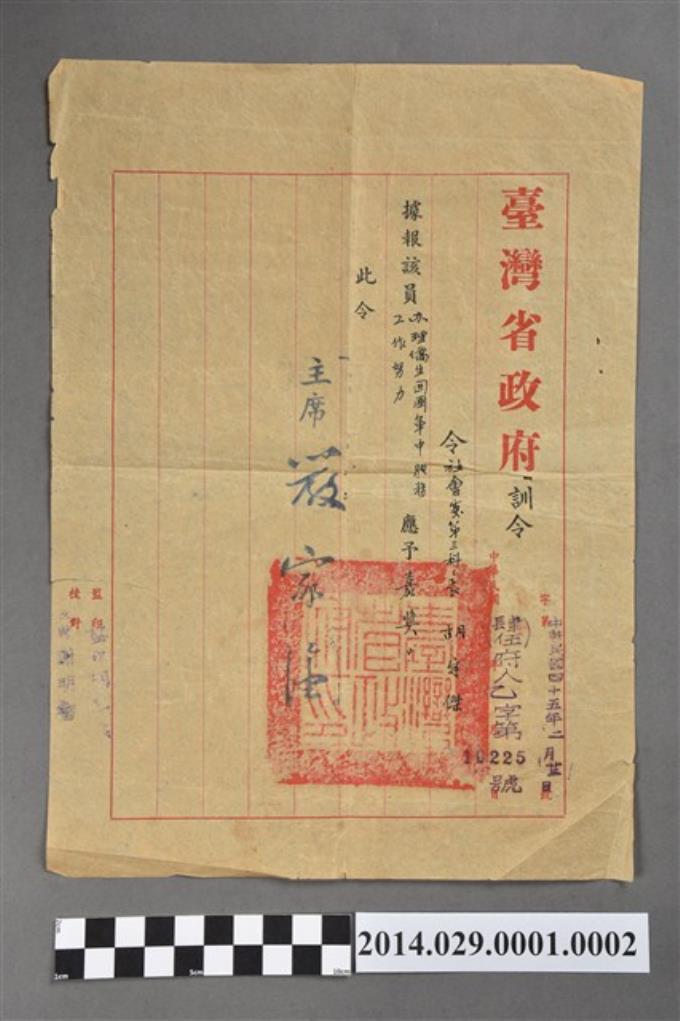 臺灣省政府訓令
中華民國四十五年二月廿日
字第 號
肆伍府人乙字第
10225
號
令社會處第三科科長胡 傑
據報該員办理僑生回國集中服務工作努力應予嘉獎
此令
主席 嚴家淦
監印
校對
2014.029.0001.0002
1cm
5cm
10cm